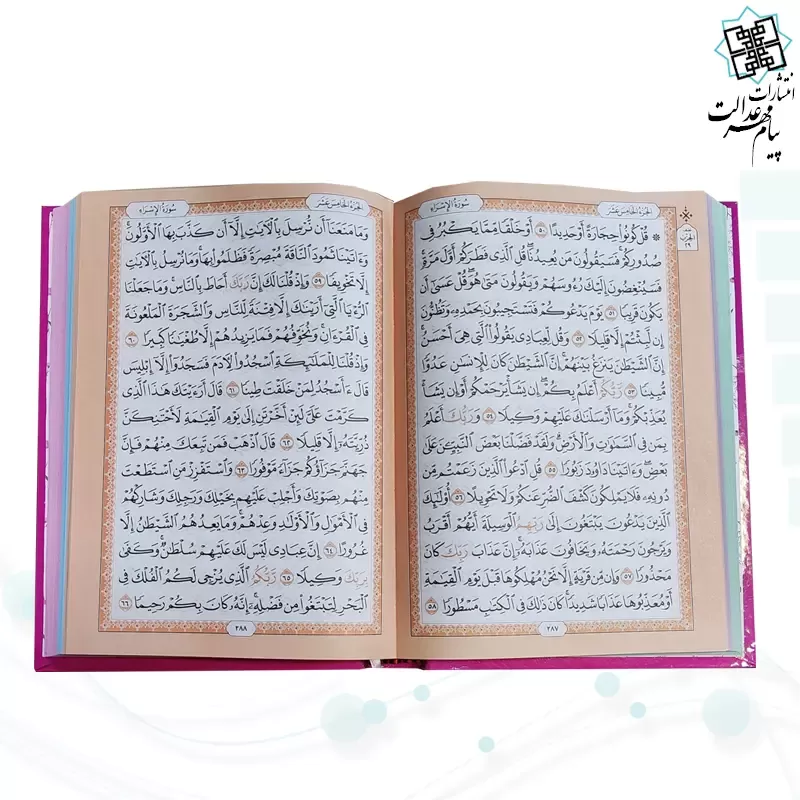 انتشارات
پیام مهر عدالت
الجزء الخامس عشر
سُورَةُ الإِسْرَاءِ
الحزب
٢٩
۞ قُلْ كُونُوا۟ حِجَارَةً أَوْ حَدِيدًا ٥٠ أَوْ خَلْقًا مِّمَّا يَكْبُرُ فِى
صُدُورِكُمْ ۚ فَسَيَقُولُونَ مَن يُعِيدُنَا ۖ قُلِ ٱلَّذِى فَطَرَكُمْ أَوَّلَ مَرَّةٍ ۚ
فَسَيُنْغِضُونَ إِلَيْكَ رُءُوسَهُمْ وَيَقُولُونَ مَتَىٰ هُوَ ۖ قُلْ عَسَىٰٓ أَن
يَكُونَ قَرِيبًا ٥١ يَوْمَ يَدْعُوكُمْ فَتَسْتَجِيبُونَ بِحَمْدِهِۦ وَتَظُنُّونَ
إِن لَّبِثْتُمْ إِلَّا قَلِيلًا ٥٢ وَقُل لِّعِبَادِى يَقُولُوا۟ ٱلَّتِى هِىَ أَحْسَنُ ۚ
إِنَّ ٱلشَّيْطَٰنَ يَنزَغُ بَيْنَهُمْ ۚ إِنَّ ٱلشَّيْطَٰنَ كَانَ لِلْإِنسَٰنِ عَدُوًّا
مُّبِينًا ٥٣ رَّبُّكُمْ أَعْلَمُ بِكُمْ ۖ إِن يَشَأْ يَرْحَمْكُمْ أَوْ إِن يَشَأْ
يُعَذِّبْكُمْ ۚ وَمَآ أَرْسَلْنَٰكَ عَلَيْهِمْ وَكِيلًا ٥٤ وَرَبُّكَ أَعْلَمُ
بِمَن فِى ٱلسَّمَٰوَٰتِ وَٱلْأَرْضِ ۗ وَلَقَدْ فَضَّلْنَا بَعْضَ ٱلنَّبِيِّۦنَ عَلَىٰ
بَعْضٍ ۖ وَءَاتَيْنَا دَاوُۥدَ زَبُورًا ٥٥ قُلِ ٱدْعُوا۟ ٱلَّذِينَ زَعَمْتُم مِّن
دُونِهِۦ فَلَا يَمْلِكُونَ كَشْفَ ٱلضُّرِّ عَنكُمْ وَلَا تَحْوِيلًا ٥٦ أُو۟لَٰٓئِكَ
ٱلَّذِينَ يَدْعُونَ يَبْتَغُونَ إِلَىٰ رَبِّهِمُ ٱلْوَسِيلَةَ أَيُّهُمْ أَقْرَبُ
وَيَرْجُونَ رَحْمَتَهُۥ وَيَخَافُونَ عَذَابَهُۥٓ ۚ إِنَّ عَذَابَ رَبِّكَ كَانَ
مَحْذُورًا ٥٧ وَإِن مِّن قَرْيَةٍ إِلَّا نَحْنُ مُهْلِكُوهَا قَبْلَ يَوْمِ ٱلْقِيَٰمَةِ
أَوْ مُعَذِّبُوهَا عَذَابًا شَدِيدًا ۚ كَانَ ذَٰلِكَ فِى ٱلْكِتَٰبِ مَسْطُورًا ٥٨
٢٨٧
الجزء الخامس عشر
سُورَةُ الإِسْرَاءِ
وَمَا مَنَعَنَآ أَن نُّرْسِلَ بِٱلْءَايَٰتِ إِلَّآ أَن كَذَّبَ بِهَا ٱلْأَوَّلُونَ ۚ
وَءَاتَيْنَا ثَمُودَ ٱلنَّاقَةَ مُبْصِرَةً فَظَلَمُوا۟ بِهَا ۚ وَمَا نُرْسِلُ بِٱلْءَايَٰتِ
إِلَّا تَخْوِيفًا ٥٩ وَإِذْ قُلْنَا لَكَ إِنَّ رَبَّكَ أَحَاطَ بِٱلنَّاسِ ۚ وَمَا جَعَلْنَا
ٱلرُّءْيَا ٱلَّتِىٓ أَرَيْنَٰكَ إِلَّا فِتْنَةً لِّلنَّاسِ وَٱلشَّجَرَةَ ٱلْمَلْعُونَةَ
فِى ٱلْقُرْءَانِ ۚ وَنُخَوِّفُهُمْ فَمَا يَزِيدُهُمْ إِلَّا طُغْيَٰنًا كَبِيرًا ٦٠
وَإِذْ قُلْنَا لِلْمَلَٰٓئِكَةِ ٱسْجُدُوا۟ لِءَادَمَ فَسَجَدُوٓا۟ إِلَّآ إِبْلِيسَ
قَالَ ءَأَسْجُدُ لِمَنْ خَلَقْتَ طِينًا ٦١ قَالَ أَرَءَيْتَكَ هَٰذَا ٱلَّذِى
كَرَّمْتَ عَلَىَّ لَئِنْ أَخَّرْتَنِ إِلَىٰ يَوْمِ ٱلْقِيَٰمَةِ لَأَحْتَنِكَنَّ
ذُرِّيَّتَهُۥٓ إِلَّا قَلِيلًا ٦٢ قَالَ ٱذْهَبْ فَمَن تَبِعَكَ مِنْهُمْ فَإِنَّ
جَهَنَّمَ جَزَآؤُكُمْ جَزَآءً مَّوْفُورًا ٦٣ وَٱسْتَفْزِزْ مَنِ ٱسْتَطَعْتَ
مِنْهُم بِصَوْتِكَ وَأَجْلِبْ عَلَيْهِم بِخَيْلِكَ وَرَجِلِكَ وَشَارِكْهُمْ
فِى ٱلْأَمْوَٰلِ وَٱلْأَوْلَٰدِ وَعِدْهُمْ ۚ وَمَا يَعِدُهُمُ ٱلشَّيْطَٰنُ إِلَّا
غُرُورًا ٦٤ إِنَّ عِبَادِى لَيْسَ لَكَ عَلَيْهِمْ سُلْطَٰنٌ ۚ وَكَفَىٰ
بِرَبِّكَ وَكِيلًا ٦٥ رَّبُّكُمُ ٱلَّذِى يُزْجِى لَكُمُ ٱلْفُلْكَ فِى
ٱلْبَحْرِ لِتَبْتَغُوا۟ مِن فَضْلِهِۦٓ ۚ إِنَّهُۥ كَانَ بِكُمْ رَحِيمًا ٦٦
٢٨٨